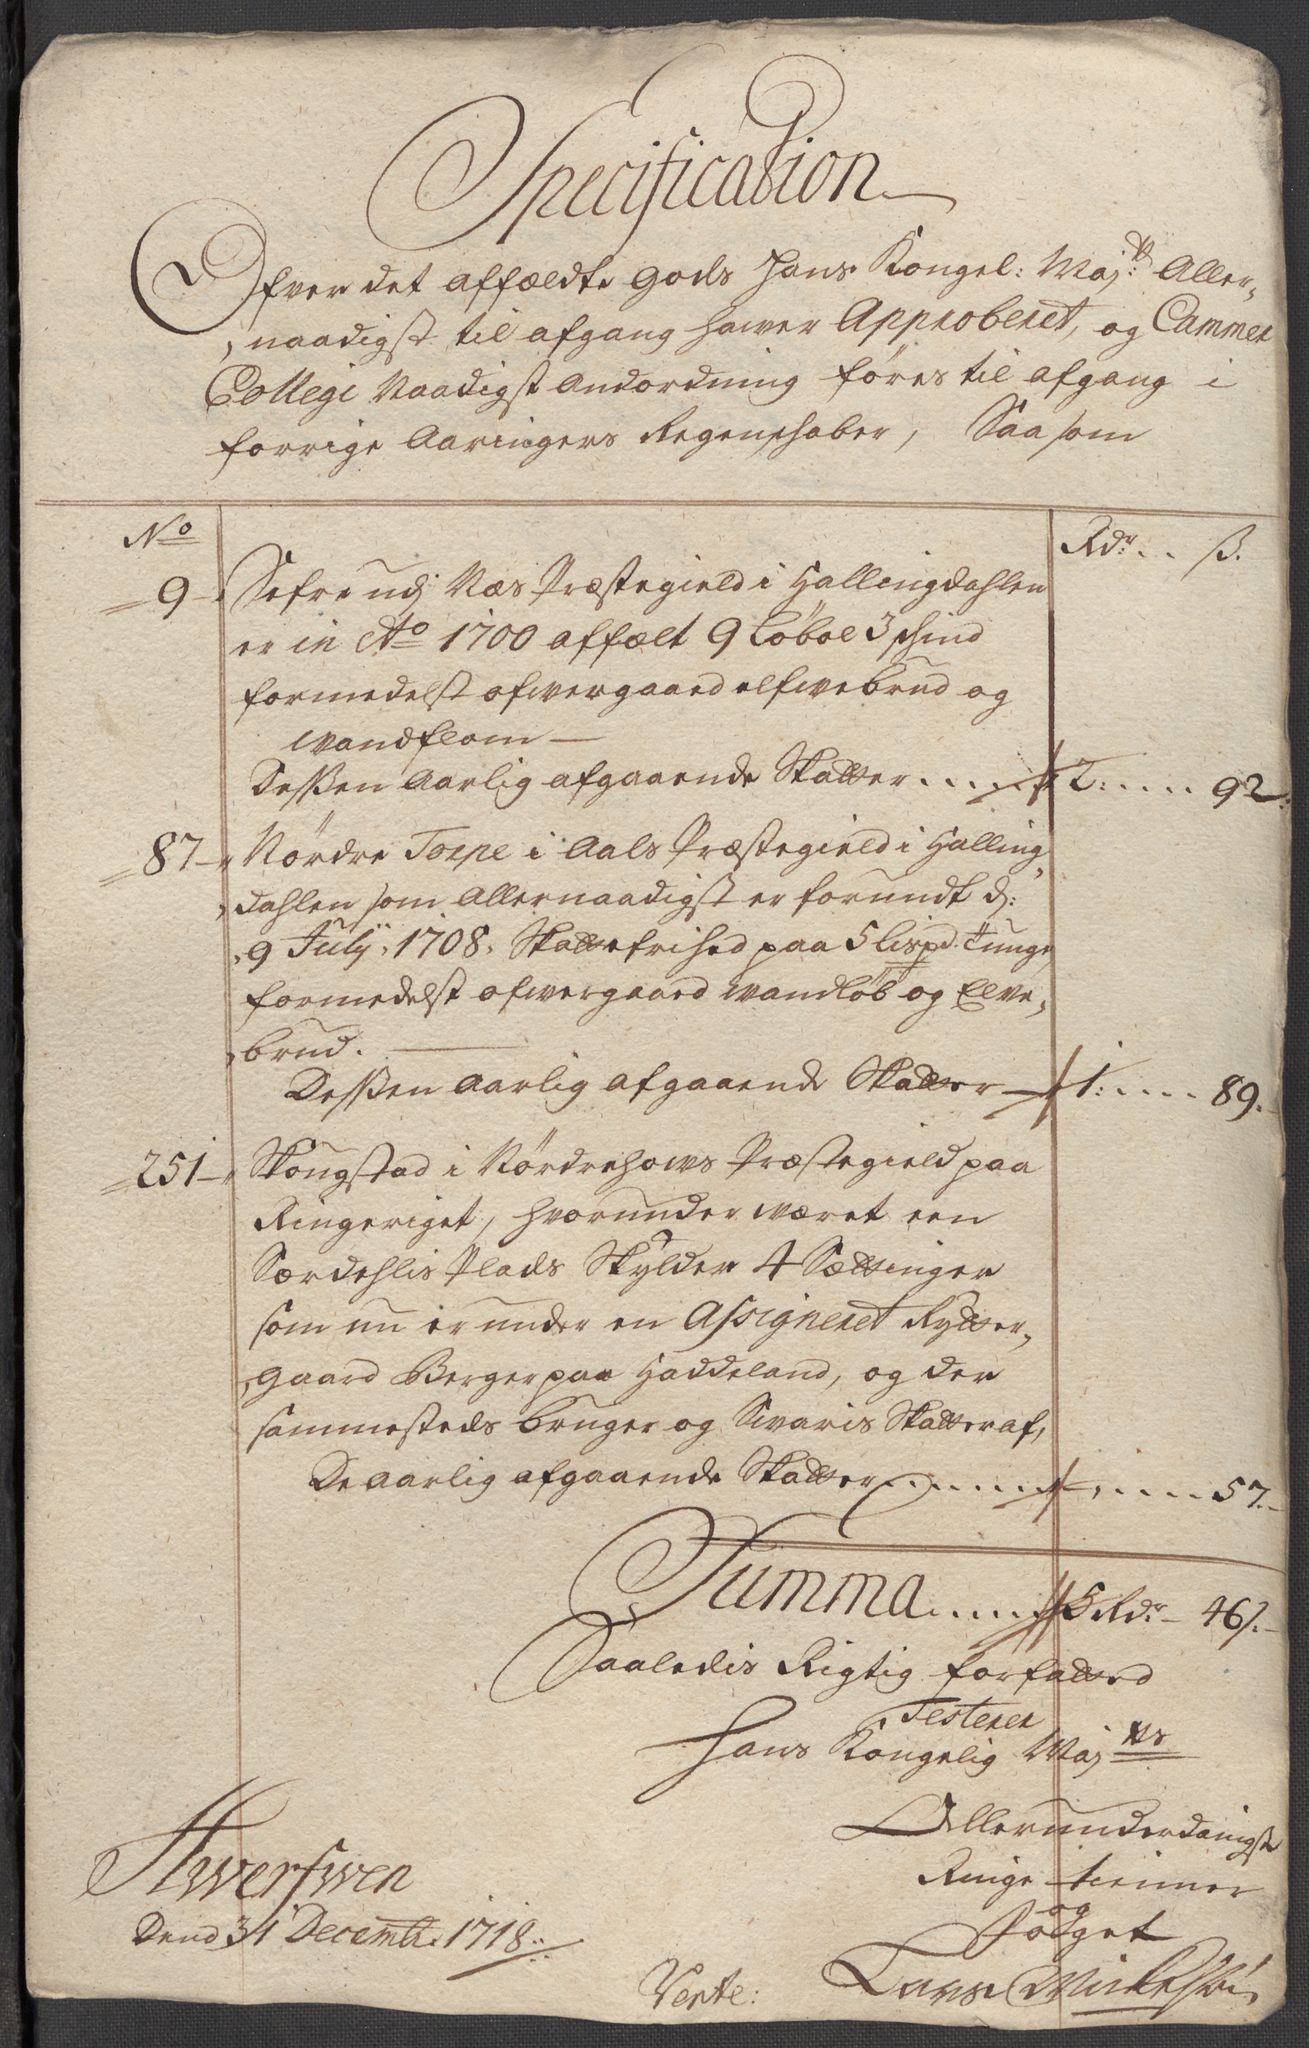 Specification
Ofver det affældte Gods Hans Kongel: Maj:tt Aller,
,naadigst til afgang hawer Approberet, og Cammer
Collegi Naadigst Andordning føres til afgang i
forrige Aaringers Regenskaber, Saasom
No
Rdr... ß.
9 Sefre udj Næs Præstegield i Hallingdahlen
er in Ao 1700 affælt 9 Løbol 3 skind
formedelst ofwergaaed elfwebrud og
wandflom
Deßen Aarlig afgaaende Skatter...... 2:..... 92:
87 Nørdre Torpe i Aals Præstegield i Halling,
,dahlen som Allernaadigst er forundt d:
9 July 1708. Skattefrihed paa 5 Lispd: Tunge,
formedelst ofwergaaed wandløb og Elve,
,brud.
Deßen Aarlig afgaaende Skatter 1:..... 89.
251 Skougstad i Nørdrehows Præstegield paa
Ringeriget, hvorunder været een
Særdehlis Plads Skylder 4 Sættinger
som nu er under en Assigneret Rytter,
,gaard Berger paa Haddeland, og der
sammesteds bruger og Swaris Skatter af,
De aarlig afgaaende Skatter....... 57.
Summa..... 5 Rdr 46ß.
Saaledis Rigtig forfatted
Testerer
Hans Kongelig Maj tts
Allerunderdanigst
Ringe tienner
og
Fodget
Hwerfwen
Dend 31 Decemb: 1718
Vente: